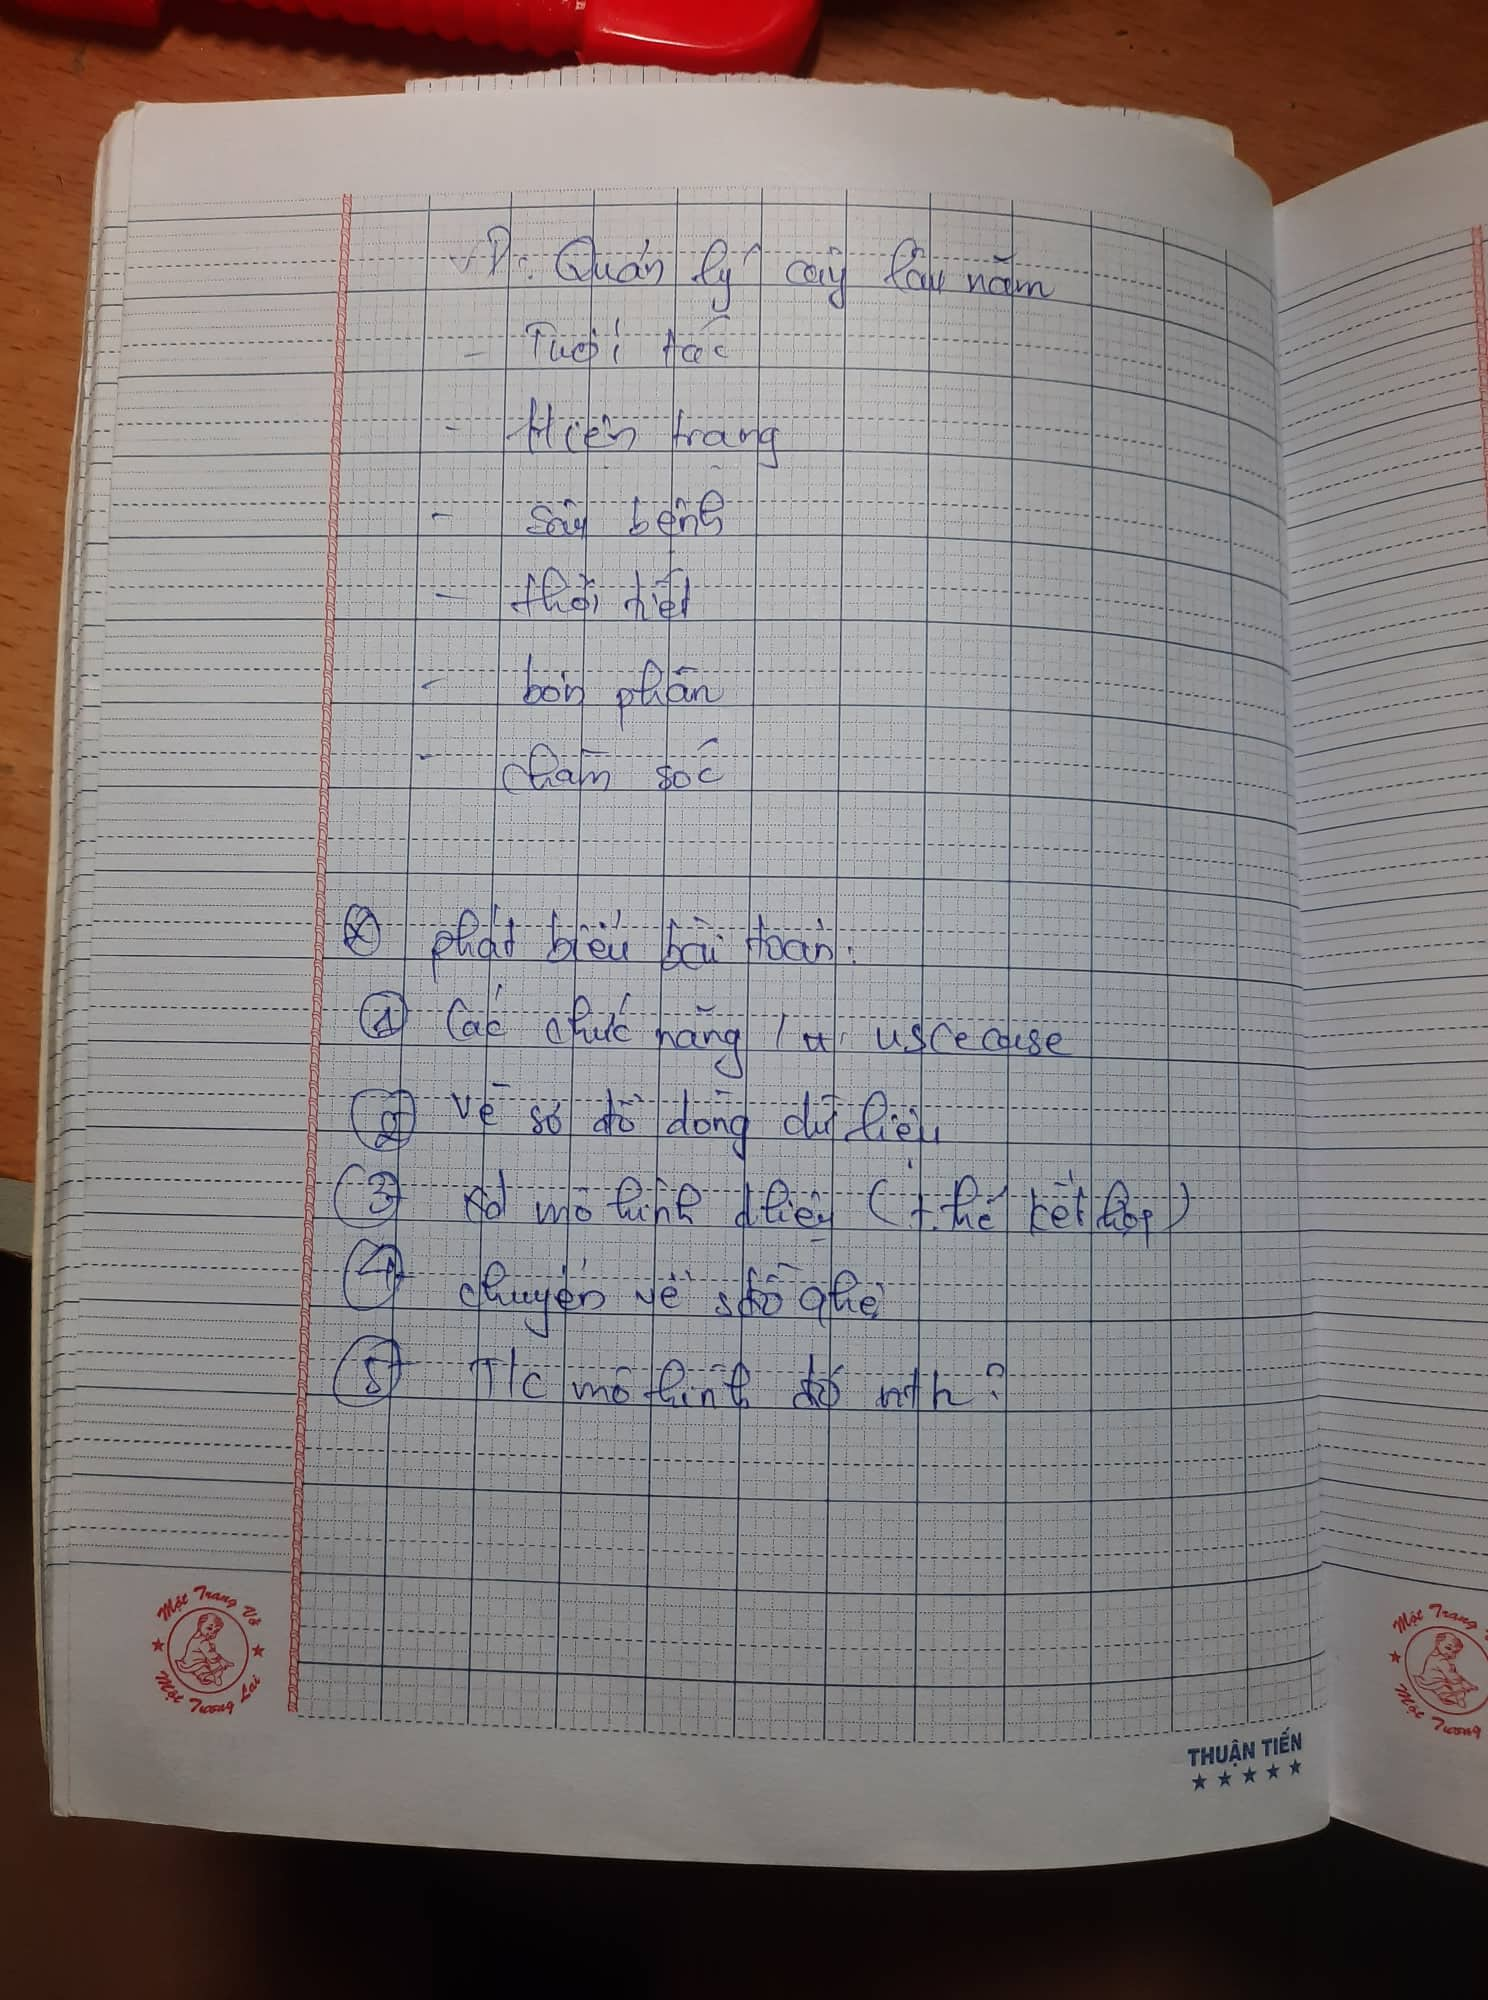 VD: Quản lý cây lâu năm
- Tuổi tác
- Hiện trạng
- sâu bệnh
- thời tiết
- bón phân
- chăm sóc
phát biểu bài toán:
① Các chức năng / usecase
② vẽ sơ đồ dòng dữ liệu
③ mô hình dliệu (t.thể kết hợp)
④ chuyển về sđồ qhệ
⑤ T/c mô hình đó ntn?
Một Trang Vở
Một Tương Lai
THUẬN TIẾN
Một Trang
Một Tương